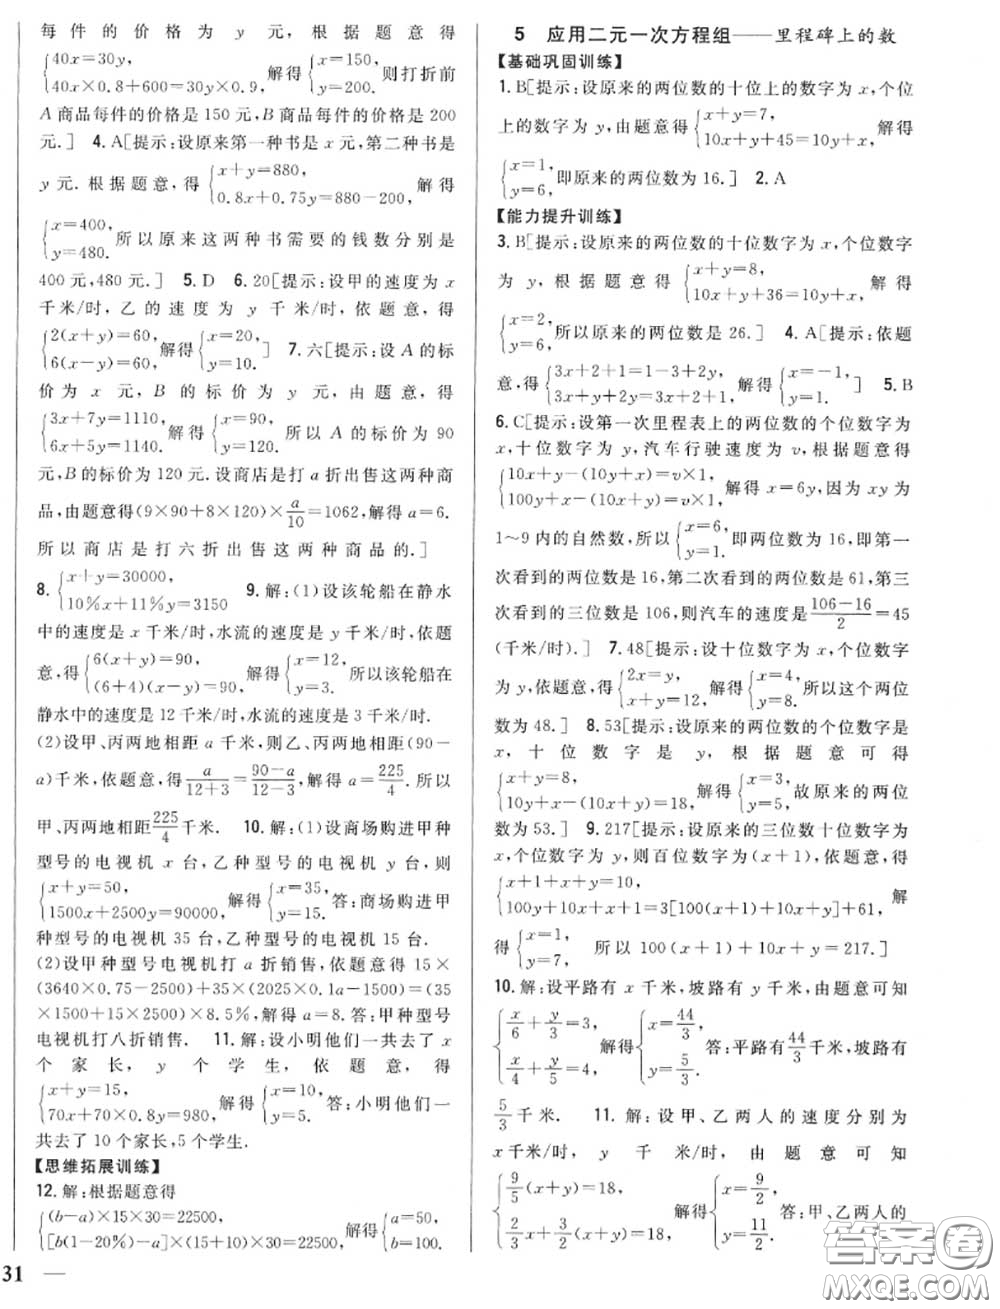 每件的价格为 y 元,根据题意得
{40x=30y, 40x×0.8+600=30y×0.9, 解得{x=150, y=200. 则打折前
A 商品每件的价格是 150 元,B 商品每件的价格是 200
元.] 4. A[提示:设原来第一种书是 x 元,第二种书是
y 元. 根据题意,得{x+y=880, 0.8x+0.75y=880-200, 解得
{x=400, y=480. 所以原来这两种书需要的钱数分别是
400 元,480 元.] 5. D 6. 20[提示:设甲的速度为 x
千米/时,乙的速度为 y 千米/时,依题意,得
{2(x+y)=60, 6(x-y)=60, 解得{x=20, y=10.] 7. 六[提示:设 A 的标
价为 x 元,B 的标价为 y 元,由题意,得
{3x+7y=1110, 6x+5y=1140. 解得{x=90, y=120. 所以 A 的标价为 90
元,B 的标价为 120 元. 设商店是打 a 折出售这两种商
品,由题意得(9×90+8×120)×a/10=1062,解得 a=6.
所以商店是打六折出售这两种商品的.]
8. {x+y=30000, 10%x+11%y=3150 9. 解:(1)设该轮船在静水
中的速度是 x 千米/时,水流的速度是 y 千米/时,依题
意,得{6(x+y)=90, (6+4)(x-y)=90, 解得{x=12, y=3. 所以该轮船在
静水中的速度是 12 千米/时,水流的速度是 3 千米/时.
(2)设甲、丙两地相距 a 千米,则乙、丙两地相距(90-
a)千米,依题意,得a/(12+3)=(90-a)/(12-3),解得 a=225/4. 所以
甲、丙两地相距225/4千米. 10. 解:(1)设商场购进甲种
型号的电视机 x 台,乙种型号的电视机 y 台,则
{x+y=50, 1500x+2500y=90000, 解得{x=35, y=15. 答:商场购进甲
种型号的电视机 35 台,乙种型号的电视机 15 台.
(2)设甲种型号电视机打 a 折销售,依题意得 15×
(3640×0.75-2500)+35×(2025×0.1a-1500)=(35
×1500+15×2500)×8.5%,解得 a=8. 答:甲种型号
电视机打八折销售. 11. 解:设小明他们一共去了 x
个家长,y 个学生,依题意,得
{x+y=15, 70x+70×0.8y=980, 解得{x=10, y=5. 答:小明他们一
共去了 10 个家长,5 个学生.
【思维拓展训练】
12. 解:根据题意得
{(b-a)×15×30=22500, [b(1-20%)-a]×(15+15)×30=22500, 解得{a=50, b=100.
31 —
5 应用二元一次方程组——里程碑上的数
【基础巩固训练】
1. B[提示:设原来的两位数的十位上的数字为 x,个位
上的数字为 y,由题意得{x+y=7, 10x+y+45=10y+x, 解得
{x=1, y=6, 即原来的两位数为 16.] 2. A
【能力提升训练】
3. B[提示:设原来的两位数的十位数字为 x,个位数字
为 y,根据题意得{x+y=8, 10x+y+36=10y+x,解得
{x=2, y=6, 所以原来的两位数是 26.] 4. A[提示:依题
意,得{3x+2+1=1-3+2y, 3x+y+2y=3x+2+1, 解得{x=-1, y=1.] 5. B
6. C[提示:设第一次里程表上的两位数的个位数字为
x,十位数字为 y,汽车行驶速度为 v,根据题意得
{10x+y-(10y+x)=v×1, 100y+x-(10x+y)=v×1, 解得 x=6y,因为 xy 为
1~9 内的自然数,所以{x=6, y=1. 即两位数为 16,即第一
次看到的两位数是 16,第二次看到的两位数是 61,第三
次看到的三位数是 106,则汽车的速度是(106-16)/2=45
(千米/时).] 7. 48[提示:设十位数字为 x,个位数字
为 y,依题意,得{2x=y, x+y=12, 解得{x=4, y=8. 所以这个两位
数为 48.] 8. 53[提示:设原来的两位数的个位数字是
x,十位数字是 y,根据题意可得
{x+y=8, 10y+x-(10x+y)=18, 解得{x=3, y=5, 故原来的两位
数为 53.] 9. 217[提示:设原来的三位数十位数字为
x,个位数字为 y,则百位数字为(x+1),依题意,得
{x+1+x+y=10, 100y+10x+x+1=3[100(x+1)+10x+y]+61, 解
得{x=1, y=7. 所以 100(x+1)+10x+y=217.]
10. 解:设平路有 x 千米,坡路有 y 千米,由题意可知
{x/6+y/3=3, x/4+y/5=4, 解得{x=44/3, y=5/3. 答:平路有44/3千米,坡路有
5/3千米. 11. 解:设甲、乙两人的速度分别为
x 千米/时,y 千米/时,由题意可知
{9/5(x+y)=18, 2/3x+3/2(x+y)=18, 解得{x=9/2, y=11/2. 答:甲、乙两人的
答案圈
MXQE.COM